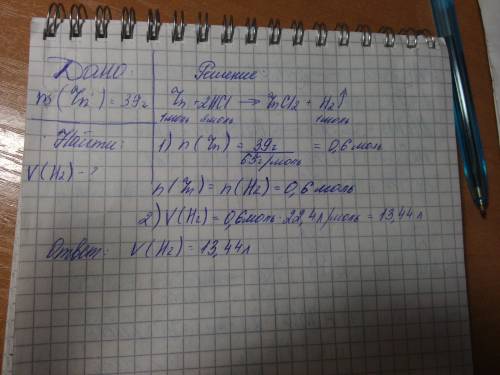 Дано:
m(Zn) = 39г
Найти:
V(H2) - ?
Решение:
Zn + 2HCl → ZnCl2 + H2↑
1моль 2моль 1моль
1) n(Zn) = 39г / 65г/моль = 0,6моль
n(Zn) = n(H2) = 0,6моль
2) V(H2) = 0,6моль · 22,4л/моль = 13,44л
Ответ: V(H2) = 13,44л